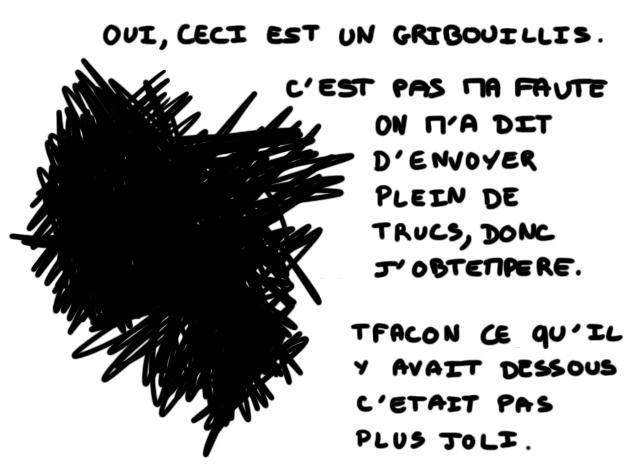 OUI, CECI EST UN GRIBOUILLIS.
C'EST PAS MA FAUTE
ON M'A DIT
D'ENVOYER
PLEIN DE
TRUCS, DONC
J'OBTEMPERE.
TFACON CE QU'IL
Y AVAIT DESSOUS
C'ETAIT PAS
PLUS JOLI.